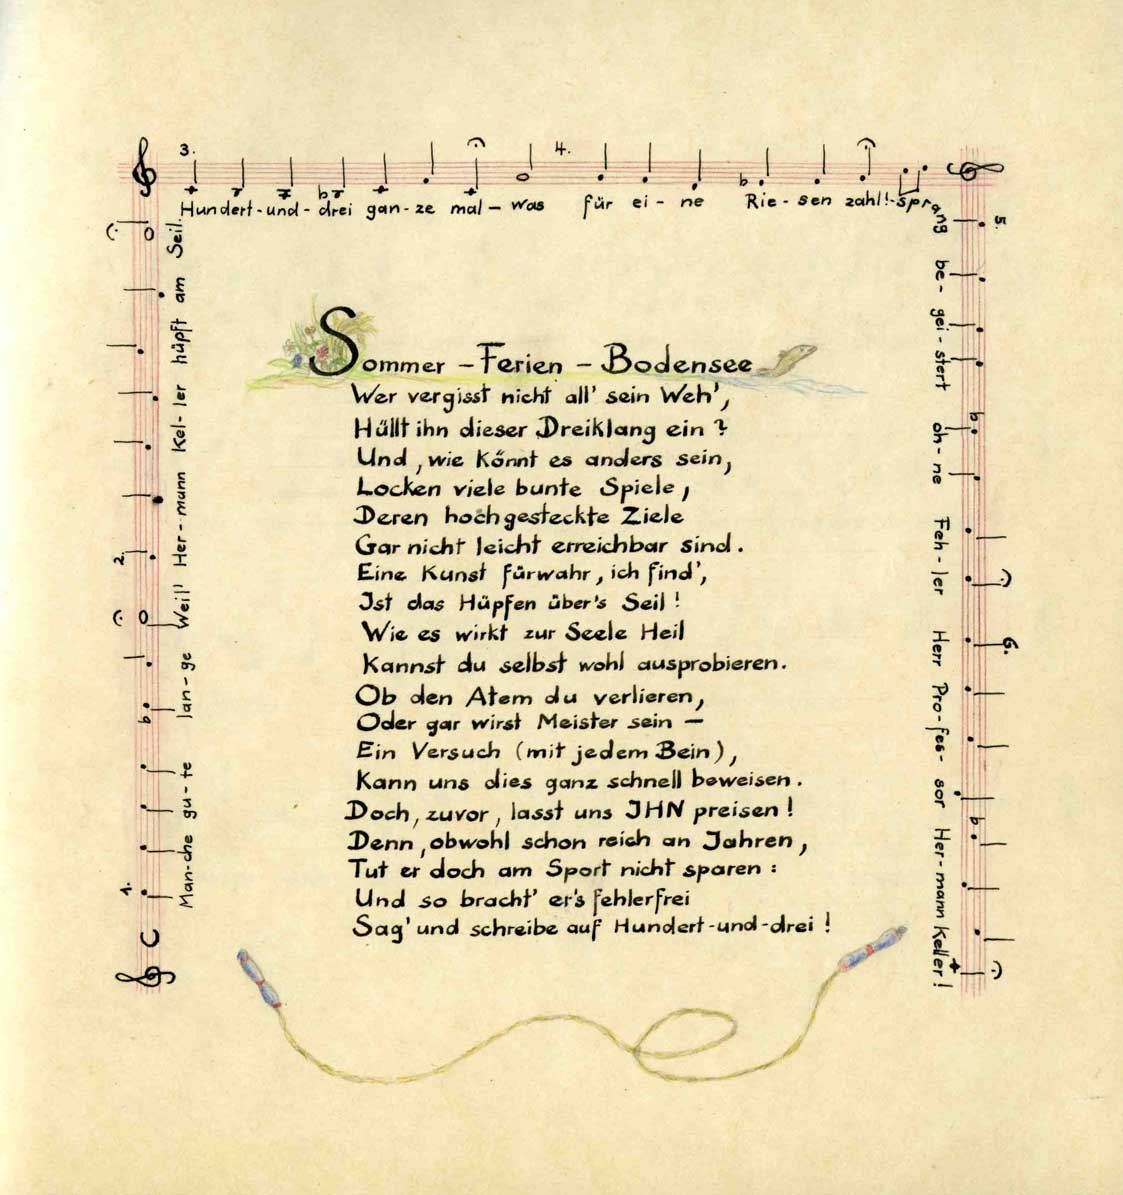 1.
Man-che gu-te lan-ge Weil'
2.
Her-mann Kel-ler hüpft am Seil.
3.
Hundert-und-drei gan-ze mal-was
4.
für ei-ne Rie-sen zahl!-sprang
5.
be-gei-stert oh-ne Feh-ler
6.
Herr Pro-fes-sor Her-mann Keller!
Sommer-Ferien-Bodensee
Wer vergisst nicht all' sein Weh',
Hüllt ihn dieser Dreiklang ein?
Und, wie könnt es anders sein,
Locken viele bunte Spiele,
Deren hochgesteckte Ziele
Gar nicht leicht erreichbar sind.
Eine Kunst fürwahr, ich find',
Ist das Hüpfen über's Seil!
Wie es wirkt zur Seele Heil
Kannst du selbst wohl ausprobieren.
Ob den Atem du verlieren,
Oder gar wirst Meister sein –
Ein Versuch (mit jedem Bein),
Kann uns dies ganz schnell beweisen.
Doch, zuvor, lasst uns IHN preisen!
Denn, obwohl schon reich an Jahren,
Tut er doch am Sport nicht sparen:
Und so bracht' er's fehlerfrei
Sag' und schreibe auf Hundert-und-drei!